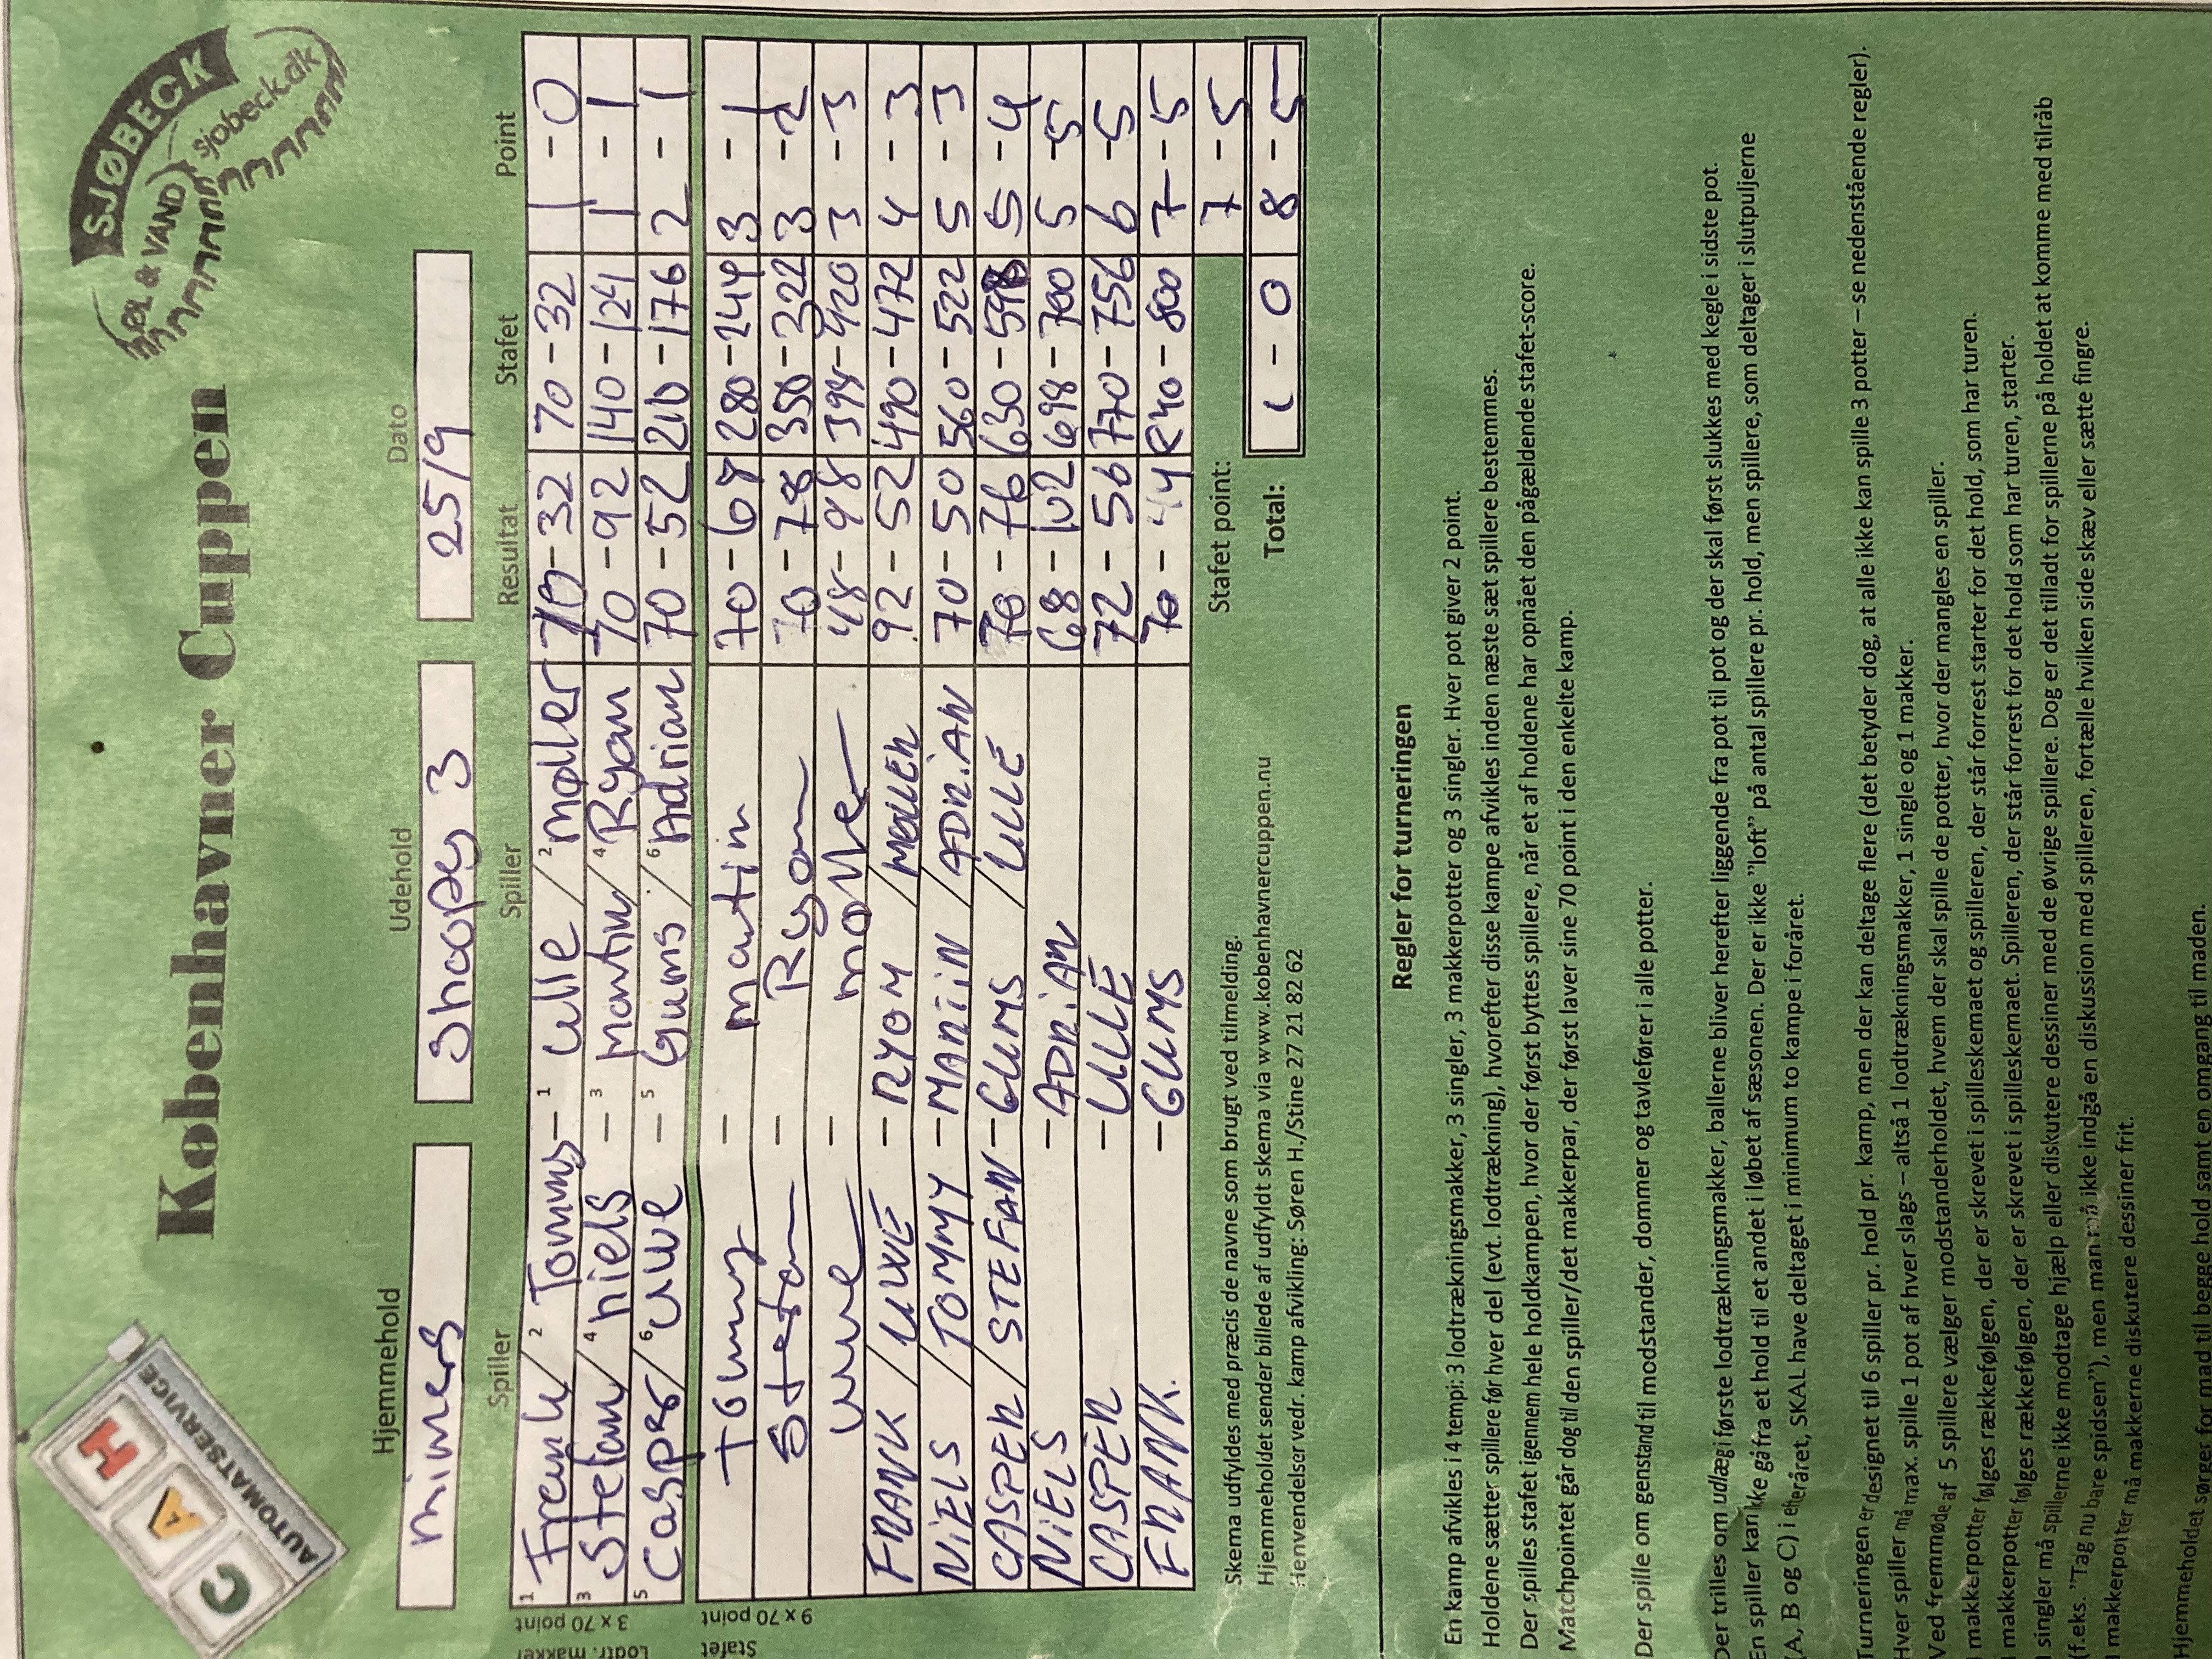 CAH
AUTOMATSERVICE
Københavner Cuppen
SJØBECK
ØL & VAND
sjobeck.dk
Hjemmehold Udehold Dato
miners Shoopes 3 25/9
Spiller Spiller Resultat Stafet Point
Lodtr. makker
3 x 70 point
1 Frank / 2 Tommy - 1 Ulle / 2 Møller 70-32 70-32 1-0
3 Stefan / 4 Niels - 3 Martin / 4 Ryan 70-92 140-124 1-1
5 Casper / 6 Uwe - 5 Gums / 6 Adrian 70-52 210-176 2-1
Stafet
9 x 70 point
Tommy - Martin 70-68 280-244 3-1
Stefan - Ryom 70-78 350-322 3-2
Uwe - Møller 48-98 398-420 3-3
FRANK / UWE - RYOM / MØLLER 92-52 490-472 4-3
NiELS / TOMMY - MARTiN / ADRiAN 70-50 560-522 5-3
CASPER / STEFAN - GUMS / ULLE 70-76 630-598 5-4
NiELS - ADRiAN 68-102 698-700 5-5
CASPER - ULLE 72-56 770-756 6-5
FRANK. - GUMS 70-44 840-800 7-5
Stafet point: 7-5
Total: 1-0 8-5
Skema udfyldes med præcis de navne som brugt ved tilmelding.
Hjemmeholdet sender billede af udfyldt skema via www.kobenhavnercuppen.nu
Henvendelser vedr. kamp afvikling: Søren H./Stine 27 21 82 62
Regler for turneringen
En kamp afvikles i 4 tempi: 3 lodtrækningsmakker, 3 singler, 3 makkerpotter og 3 singler. Hver pot giver 2 point.
Holdene sætter spillere før hver del (evt. lodtrækning), hvorefter disse kampe afvikles inden næste sæt spillere bestemmes.
Der spilles stafet igennem hele holdkampen, hvor der først byttes spillere, når et af holdene har opnået den pågældende stafet-score.
Matchpointet går dog til den spiller/det makkerpar, der først laver sine 70 point i den enkelte kamp.
Der spille om genstand til modstander, dommer og tavlefører i alle potter.
Der trilles om udlæg i første lodtrækningsmakker, ballerne bliver herefter liggende fra pot til pot og der skal først slukkes med kegle i sidste pot.
En spiller kan ikke gå fra et hold til et andet i løbet af sæsonen. Der er ikke "loft" på antal spillere pr. hold, men spillere, som deltager i slutpuljerne
(A, B og C) i efteråret, SKAL have deltaget i minimum to kampe i foråret.
Turneringen er designet til 6 spiller pr. hold pr. kamp, men der kan deltage flere (det betyder dog, at alle ikke kan spille 3 potter – se nedenstående regler).
Hver spiller må max. spille 1 pot af hver slags – altså 1 lodtrækningsmakker, 1 single og 1 makker.
Ved fremmøde af 5 spillere vælger modstanderholdet, hvem der skal spille de potter, hvor der mangles en spiller.
I makkerpotter følges rækkefølgen, der er skrevet i spilleskemaet og spilleren, der står forrest starter for det hold, som har turen.
I makkerpotter følges rækkefølgen, der er skrevet i spilleskemaet. Spilleren, der står forrest for det hold som har turen, starter.
I singler må spillerne ikke modtage hjælp eller diskutere dessiner med de øvrige spillere. Dog er det tilladt for spillerne på holdet at komme med tilråb
(f.eks. "Tag nu bare spidsen"), men man må ikke indgå en diskussion med spilleren, fortælle hvilken side skæv eller sætte fingre.
I makkerpotter må makkerne diskutere dessiner frit.
Hjemmeholdet sørger for mad til begge hold samt en omgang til maden.